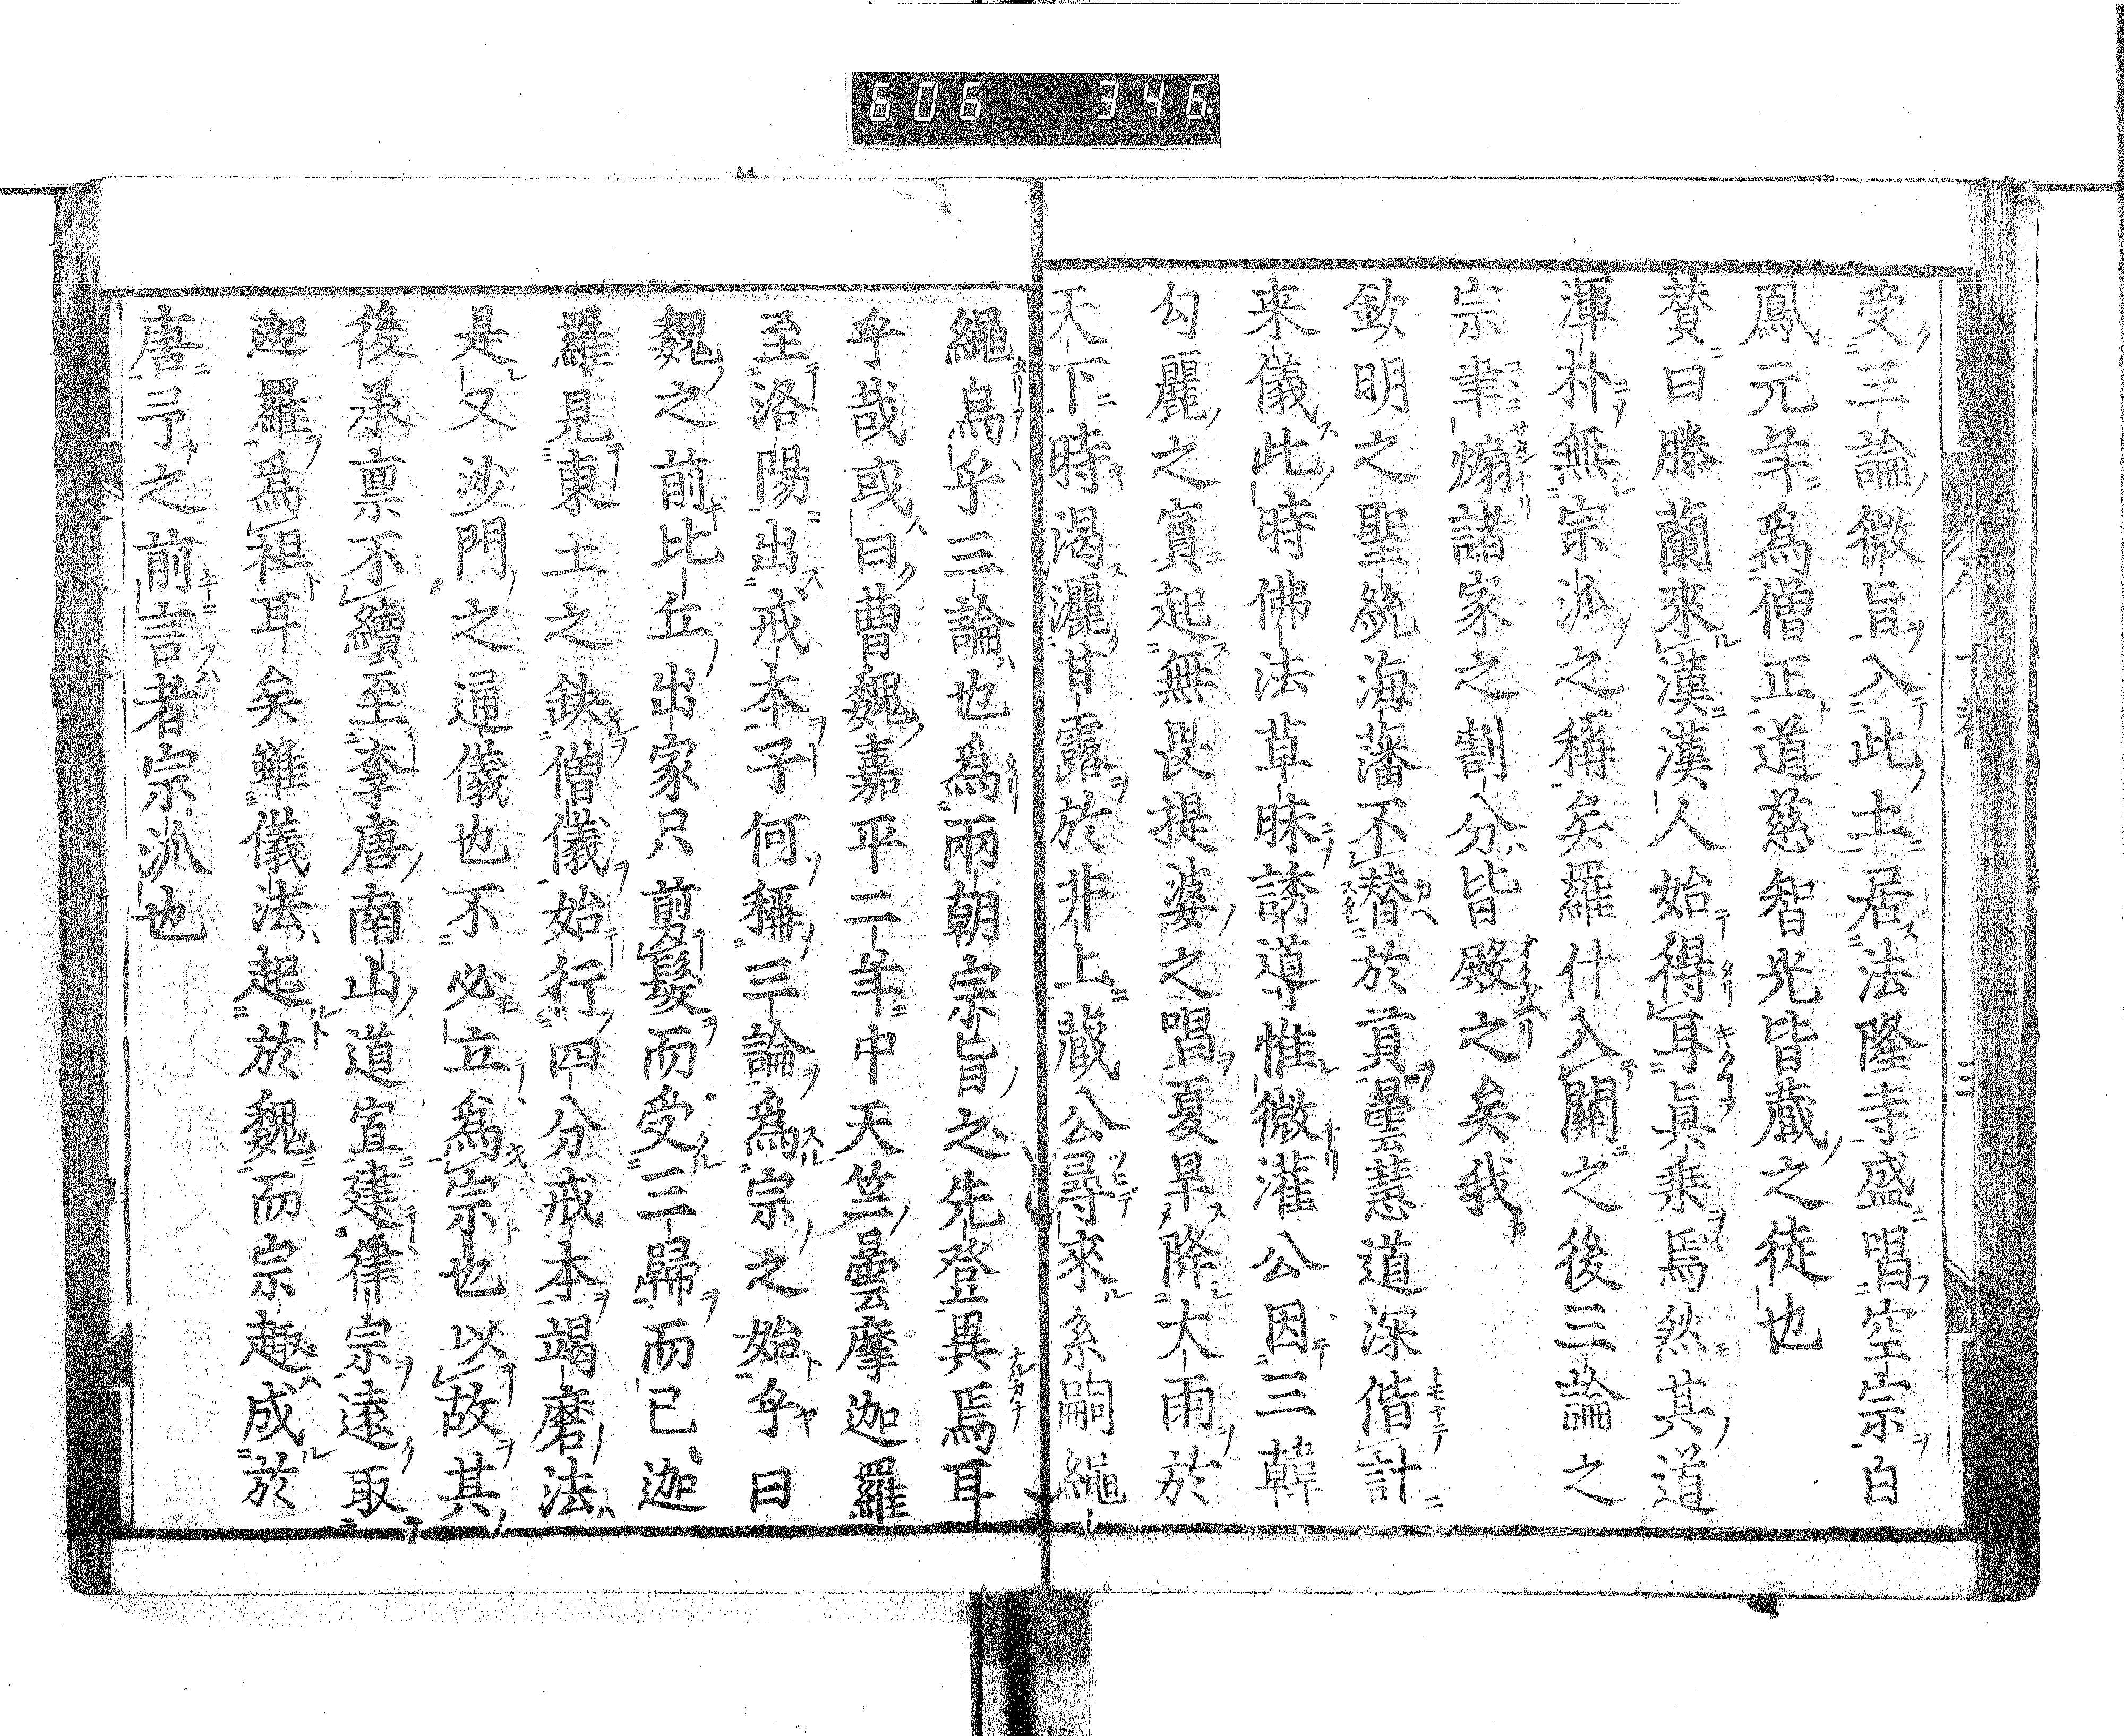 606 346
受三論微旨入此土居法隆寺盛唱空宗白
鳳元年為僧正道慈智光皆蔵之徒也
賛曰滕蘭來漢漢人始得耳眞乗焉然其道
渾朴無宗派之稱矣羅什入關之後三論之
宗聿煽諸家之割分皆殿之矣我
欽明之聖統海藩不替於貢曇慧道深偕計
来儀此時佛法草昧誘導惟微灌公因三韓
勾麗之賓起無畏提婆之唱夏旱降大雨於
天下時渇灑甘露於非上蔵公尋來系嗣繩
繩烏乎三論也為兩朝宗旨之先登異焉耳
乎哉或曰曹魏嘉平二年中天竺曇摩迦羅
至洛陽出戒本子何稱三論為宗之始乎曰
魏之前比丘出家只剪髮而受三歸而已迦
羅見東土之鈌僧儀始行四分戒本竭磨法
是又沙門之通儀也不必立為宗也以故其
後承禀不續至李唐南山道宣建律宗遠取
迦羅為祖耳矣雖儀法起於魏而宗趣成於
唐予之前言者宗派也